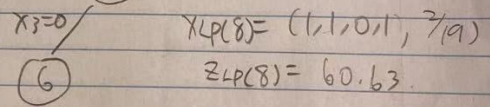 x3=0 XLP(8)= (1,1,0,1, 2/19)
6 ZLP(8)= 60.63